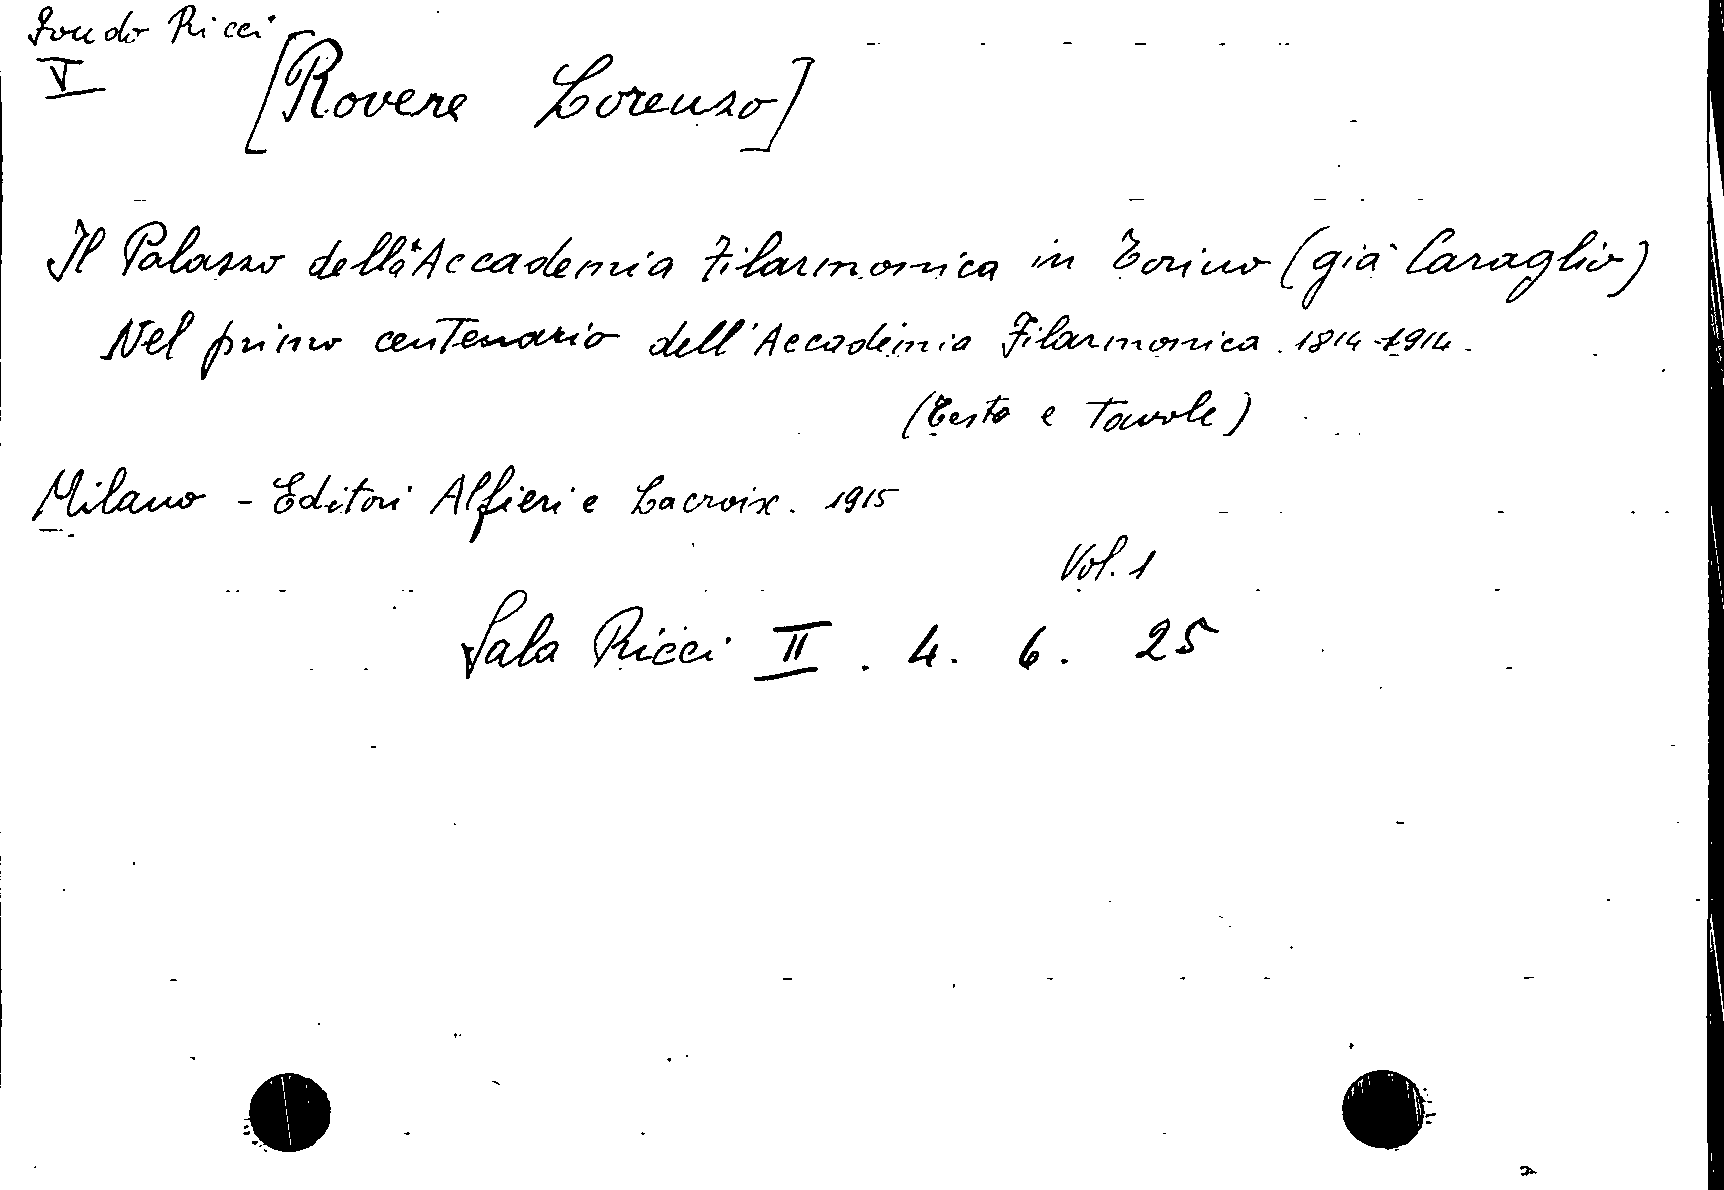 Fondo Ricci
V
[Rovere Lorenzo]
Il Palazzo dell'Accademia Filarmonica in Torino (già Caraglio)
Nel primo centenario dell'Accademia Filarmonica. 1814-1914.
(Testo e Tavole)
Milano - Editori Alfieri e Lacroix. 1915
Vol. 1
Sala Ricci II. 4. 6. 25